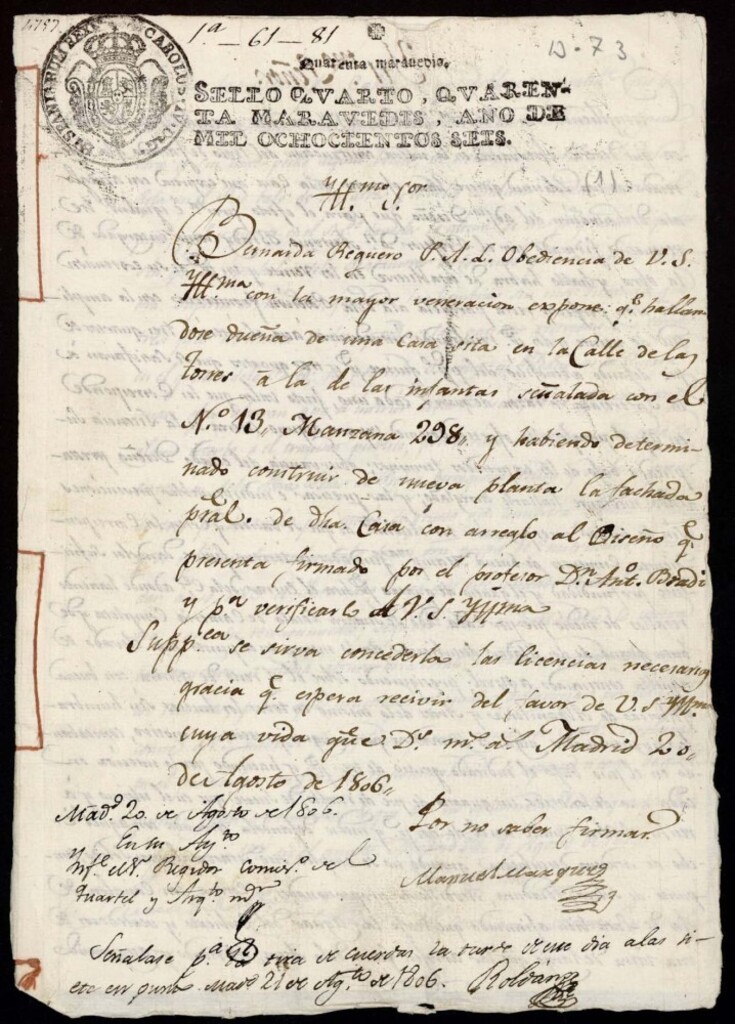 1757
HISPANIARUM REX CAROLUS IV D G
1.ª - 61 - 81
10-73
Quarenta maravedis.
SELLO QVARTO, QVAREN-
TA MARAVEDIS, AÑO DE
MIL OCHOCIENTOS SEIS.
(1)
Yll.mo Sor
Bernarda Reguero P. A. L. Obediencia de V. S.
Yll.ma con la mayor veneracion expone: q.e hallan-
dose dueña de una Casa sita en la Calle de las
Torres á la de las infantas señalada con el
N.º 13, Manzana 298, y habiendo determi-
nado construir de nueva planta la fachada
pral. de dha. Casa con arreglo al Diseño q.e
presenta firmado por el profesor D.n Ant.º
y p.a verificarlo á V. S. Yllma
Supp.ca se sirva concederla las licencias necesarias
gracia q.e espera recivir del favor de V. S. Yllma.
cuya vida gue D.s m.s a.s Madrid 20,
de Agosto de 1806,,
Por no saber firmar
Manuel Marquez
Mad.d 20. de Agosto de 1806.
En su Ay.to
Ynf.e el S.r Regidor Comis.º del
Quartel y Arq.to m.r
Señalase p.a la tira de cuerdas la tarde de este dia a las si-
ete en punto Mad.d 21 de Ag.to de 1806. Roldán